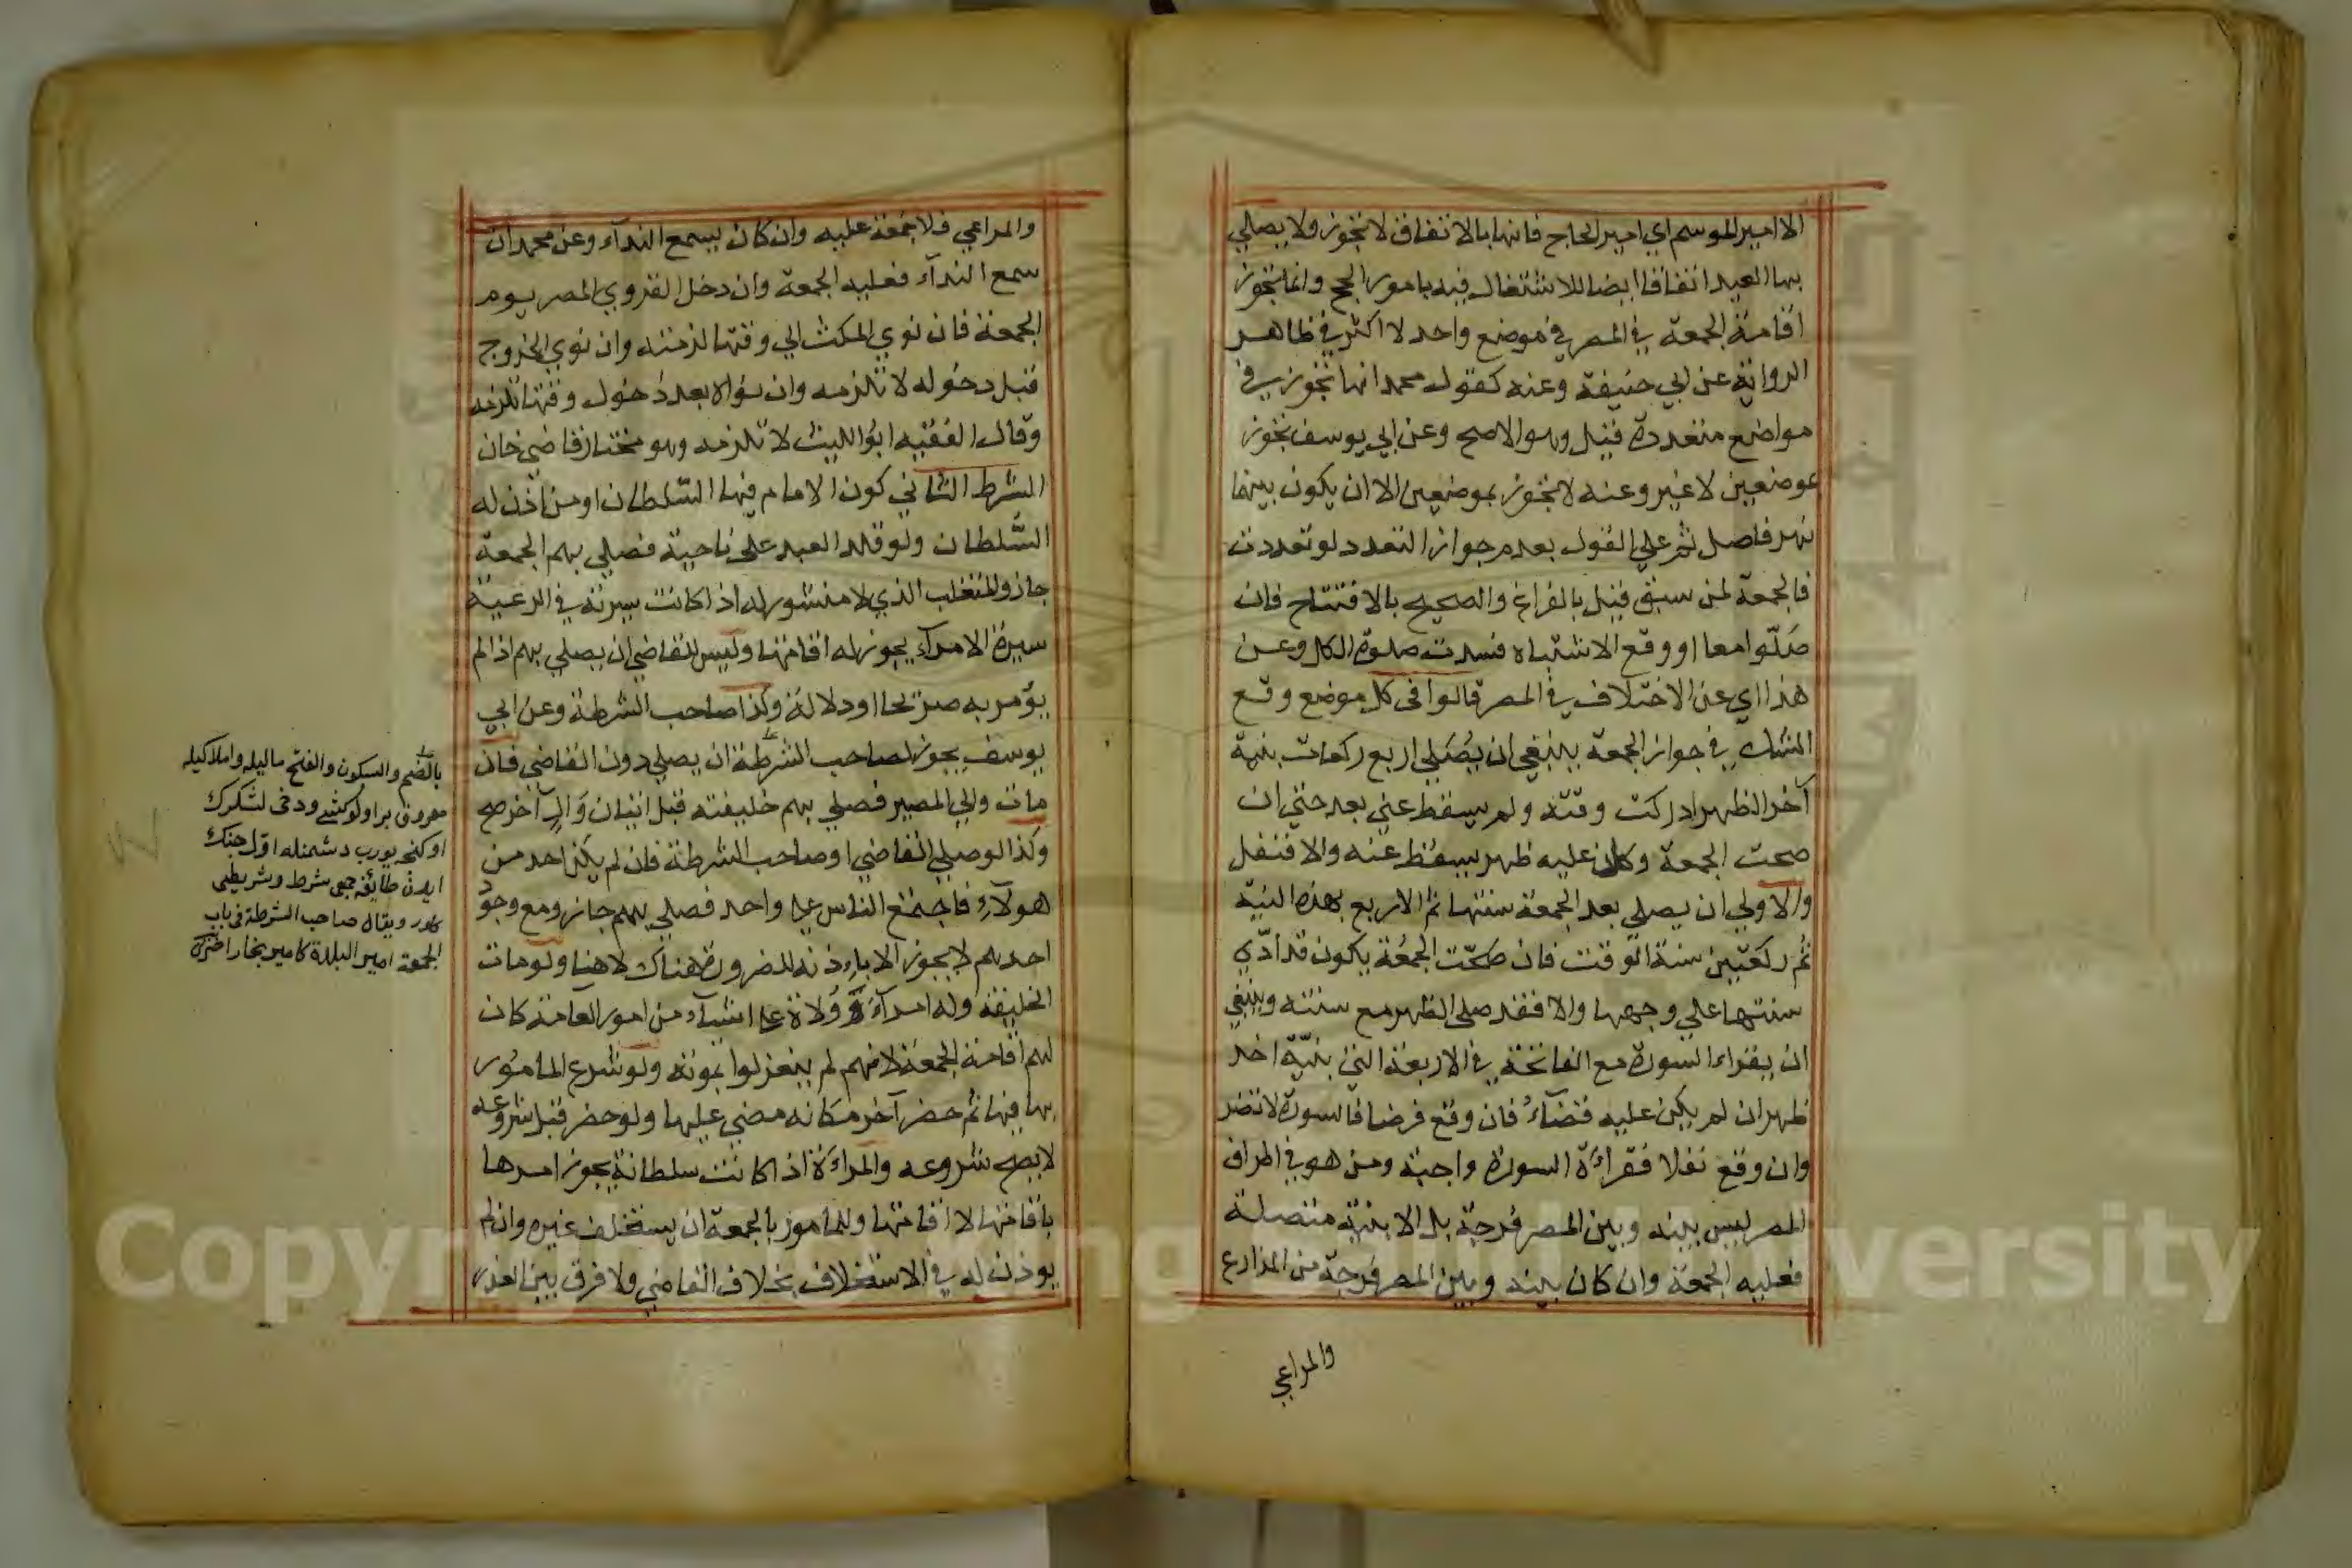 الا امير الموسم اي امير الحاج فانها بالاتفاق لا تجوز ولا يصلي
بها العيد اتفاقا ايضا للاشتغال فيه بامور الحج وانما تجوز
اقامة الجمعة في المصر في موضع واحد لا اكثر في ظاهر
الرواية عن ابي حنيفة وعنه كقول محمد انها تجوز في
مواضع متعددة قيل وهو الاصح وعن ابي يوسف تجوز
بموضعين لا غير وعنه لا تجوز بموضعين الا ان يكون بينهما
نهر فاصل ثم علي القول بعدم جواز التعدد لو تعددت
فالجمعة لمن سبق قيل بالفراغ والصحيح بالافتتاح فان
صلّوا معا او وقع الاشتباه فسدت صلوة الكل وعن
هذا اي عن الاختلاف في المصر قالوا في كل موضع وقع
الشك في جواز الجمعة ينبغي ان يُصَلي اربع ركعات بنية
آخر الظهر ادركت وقته ولم يسقط عني بعد حتي ان
صحت الجمعة وكان عليه ظهر يسقط عنه والا فنفل
والاولي ان يصلي بعد الجمعة سنتها ثم الاربع بهذه النيّة
ثم ركعتين سنة الوقت فان صحّت الجمعة يكون قد ادّي
سنتها علي وجهها والا فقد صلي الظهر مع سنته وينبغي
ان يقراء السورة مع الفاتحة في الاربعة التي بنيّة اخر
ظهر ان لم يكن عليه قضآء فان وقع فرضا فالسورة لا تضر
وان وقع نفلا فقراءة السورة واجبة ومن هو في اطراف
المصر ليس بينه وبين المصر فرجة بل الابنية متصلة
فعليه الجمعة وان كان بينه وبين المصر فرجة من المزارع
والمراعي
والمراعي فلا جمعة عليه وان كان يسمع الندآء وعن محمد ان
سمع الندآء فعليه الجمعة وان دخل القروي المصر يوم
الجمعة فان نوي المكث الي وقتها لزمته وان نوي الخروج
قبل دخوله لا تلزمه وان نواه بعد دخول وقتها تلزمه
وقال الفقيه ابو الليث لا تلزمه وهو مختار قاضي خان
الشرط الثاني كون الامام فيها السّلطان او من اذن له
السُّلطان ولو قلد العبد علي ناحية فصلي بهم الجمعة
جاز والمتغلب الذي لا منشور له اذا كانت سيرته في الرعية
سيرة الامرآء يجوز له اقامتها وليس للقاضي ان يصلي بهم اذا لم
يؤمر به صريحا او دلالة وكذا صاحب الشرطة وعن ابي
يوسف يجوز لصاحب الشرطة ان يصلي دون القاضي فان
مات والي المصر فصلي بهم خليفته قبل اتيان وَالٍ آخر صح
وكذا لو صلي القاضي او صاحب الشرطة فان لم يكن احد من
هولآء فاجتمع الناس علي واحد فصلي بهم جاز ومع وجو
احدهم لا يجوز الا باذنه للضرورة هناك لا هنا ولو مات
الخليفة وله امرآء وولاة علي اشيآء من امور العامة كان
لهم اقامة الجمعة لانهم لم ينعزلوا بموته ولو شرع المامور
بها فيها ثم حضر آخر مكانه مضي عليها ولو حضر قبل شروعه
لا يصح شروعه والمراءة اذا كانت سلطانة يجوز امرها
باقامتها لا اقامتها وللمامور بالجمعة ان يستخلف غيره وان لم
يوذن له في الاستخلاف بخلاف القاضي ولا فرق بين العذر
بالضم والسكون والفتح
معروف
اوّل جنك
ايدن طائفه شرط
ويقال صاحب الشرطة في باب
الجمعة امير البلدة كامير بخارا
Copyright King University